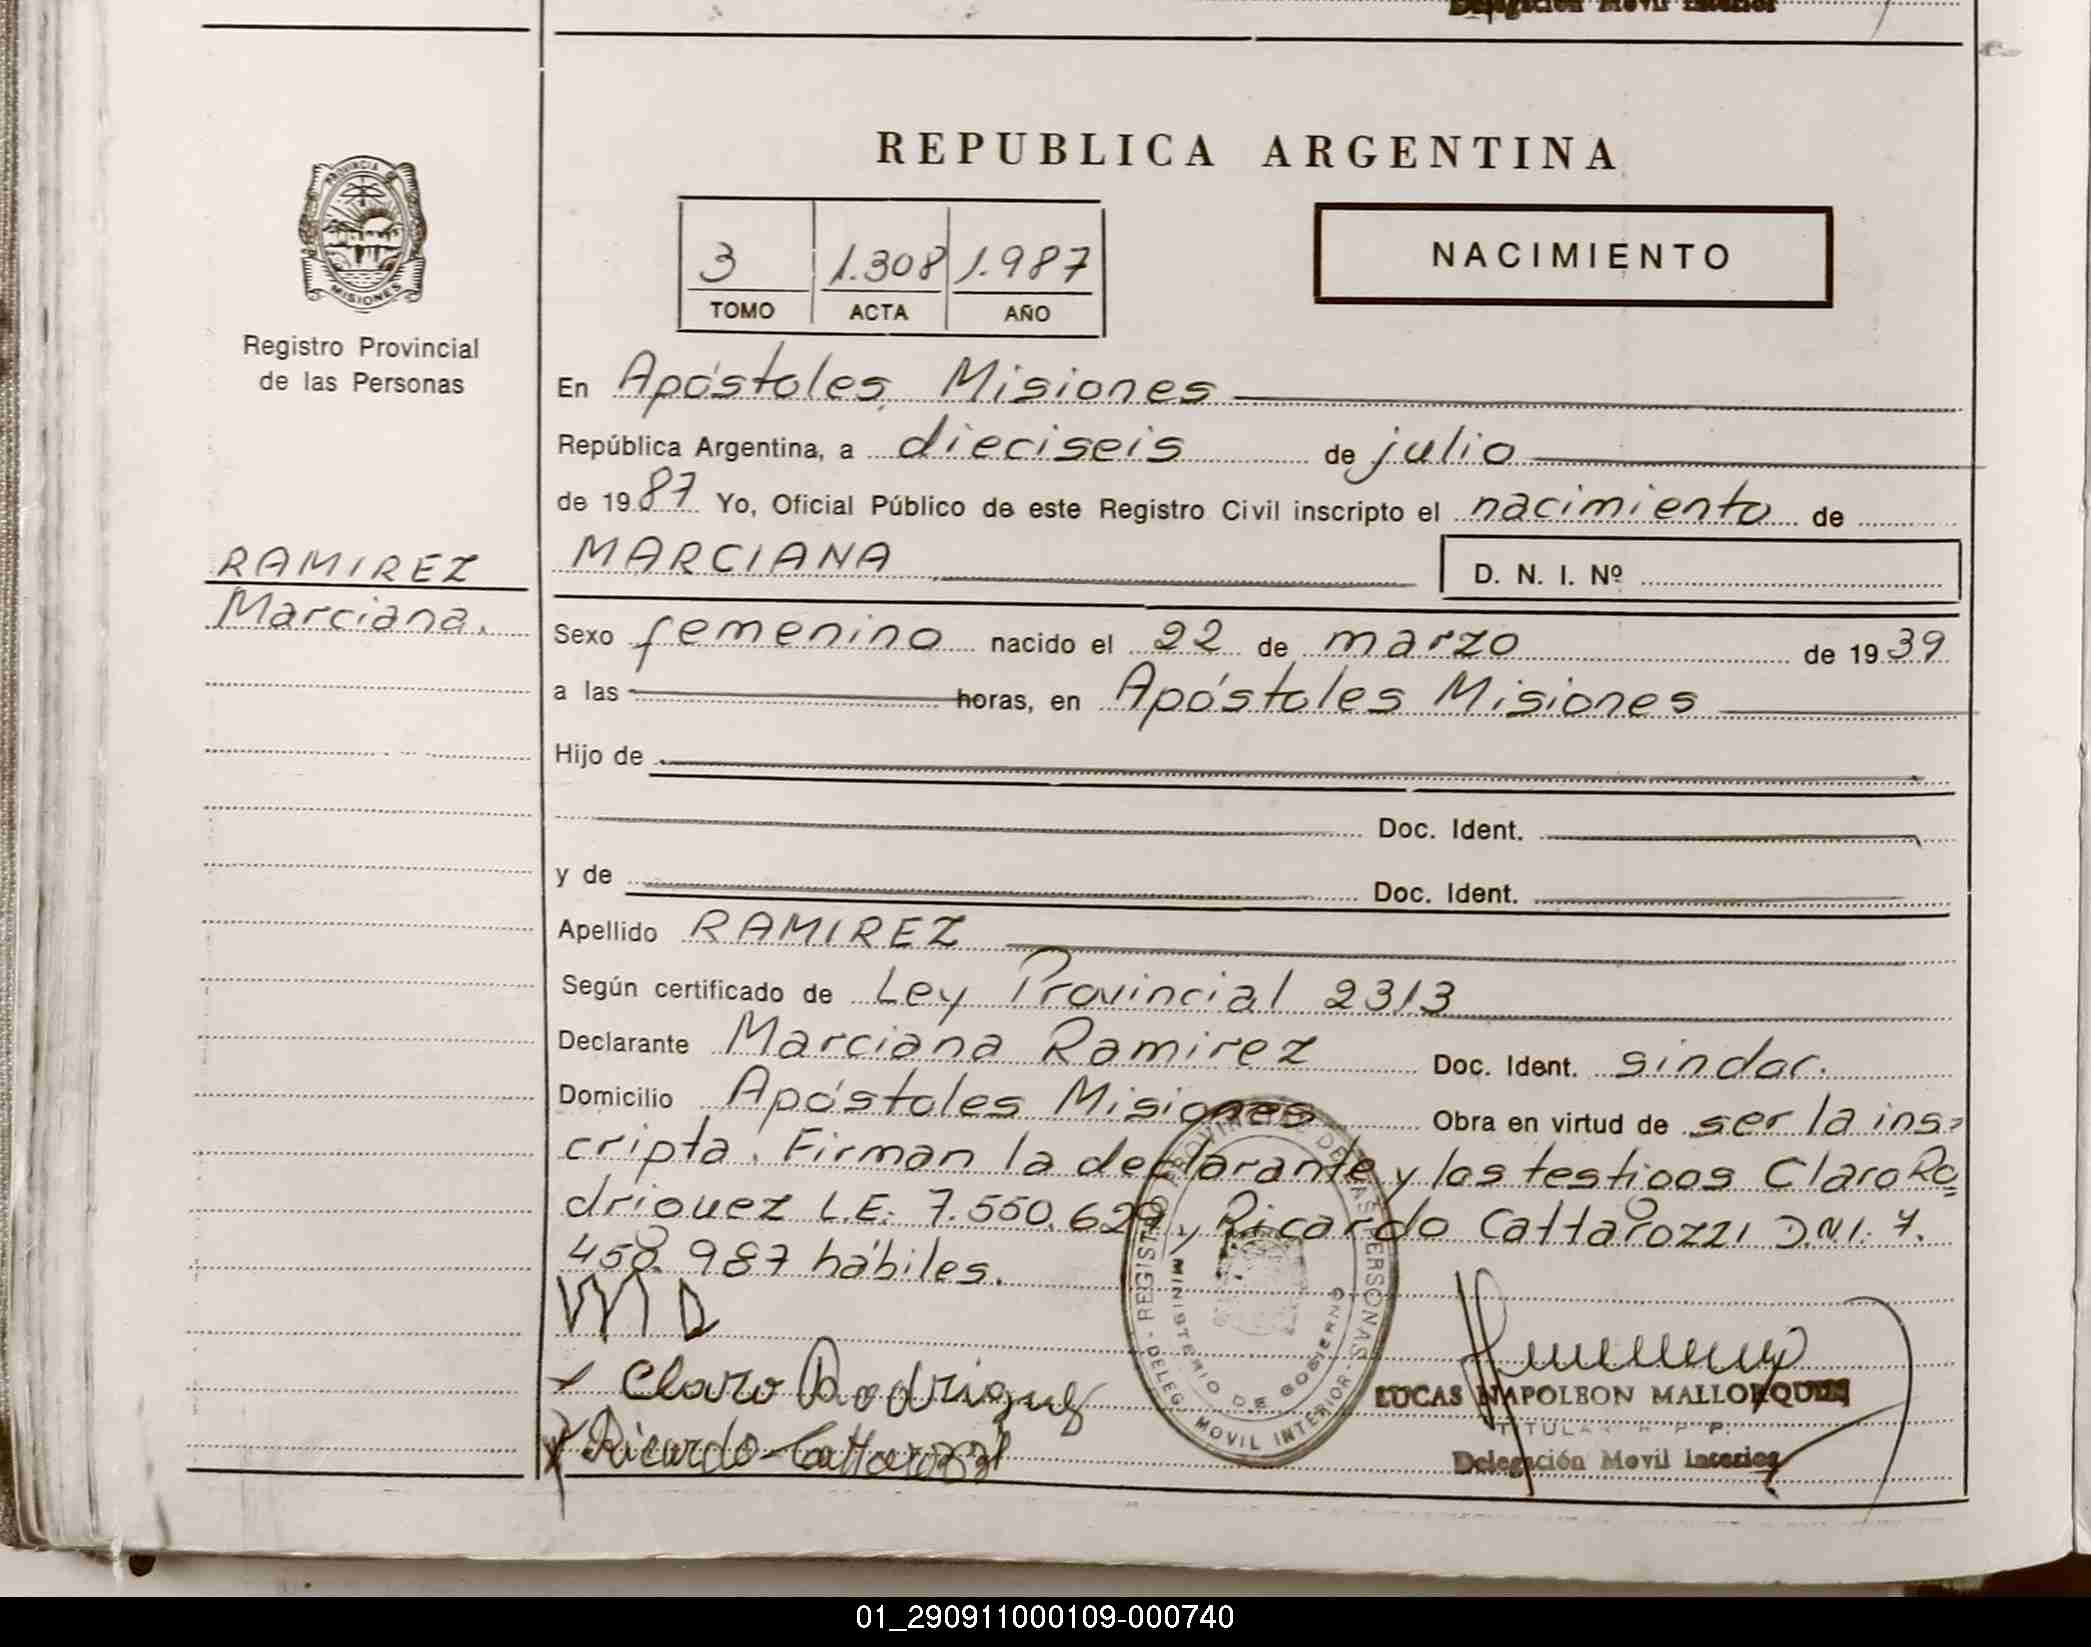 Delegación Movil Interior
PROVINCIA DE
MISIONES
Registro Provincial
de las Personas
RAMIREZ
Marciana.
REPUBLICA ARGENTINA
3 1.308 1.987
TOMO ACTA AÑO
NACIMIENTO
En Apóstoles Misiones
República Argentina, a dieciseis de julio
de 1987 Yo, Oficial Público de este Registro Civil inscripto el nacimiento de
MARCIANA D. N. I. Nº
Sexo femenino nacido el 22 de marzo de 1939
a las horas, en Apóstoles Misiones
Hijo de
Doc. Ident.
y de Doc. Ident.
Apellido RAMIREZ
Según certificado de Ley Provincial 2313
Declarante Marciana Ramirez Doc. Ident. sindoc.
Domicilio Apóstoles Misiones Obra en virtud de ser la ins=
cripta. Firman la declarante y los testigos Claro Ro
driguez L.E. 7.550.629 y Ricardo Cattarozzi D.N.I. 7.
458.987 hábiles.
Claro Rodriguez
Ricardo Cattarozzi
REGISTRO PROVINCIAL DE LAS PERSONAS - DELEG. MOVIL INTERIOR -
MINISTERIO DE GOBIERNO
LUCAS NAPOLEON MALLORQUIN
TITULAR R. P. P.
Delegación Movil Interior
01_290911000109-000740